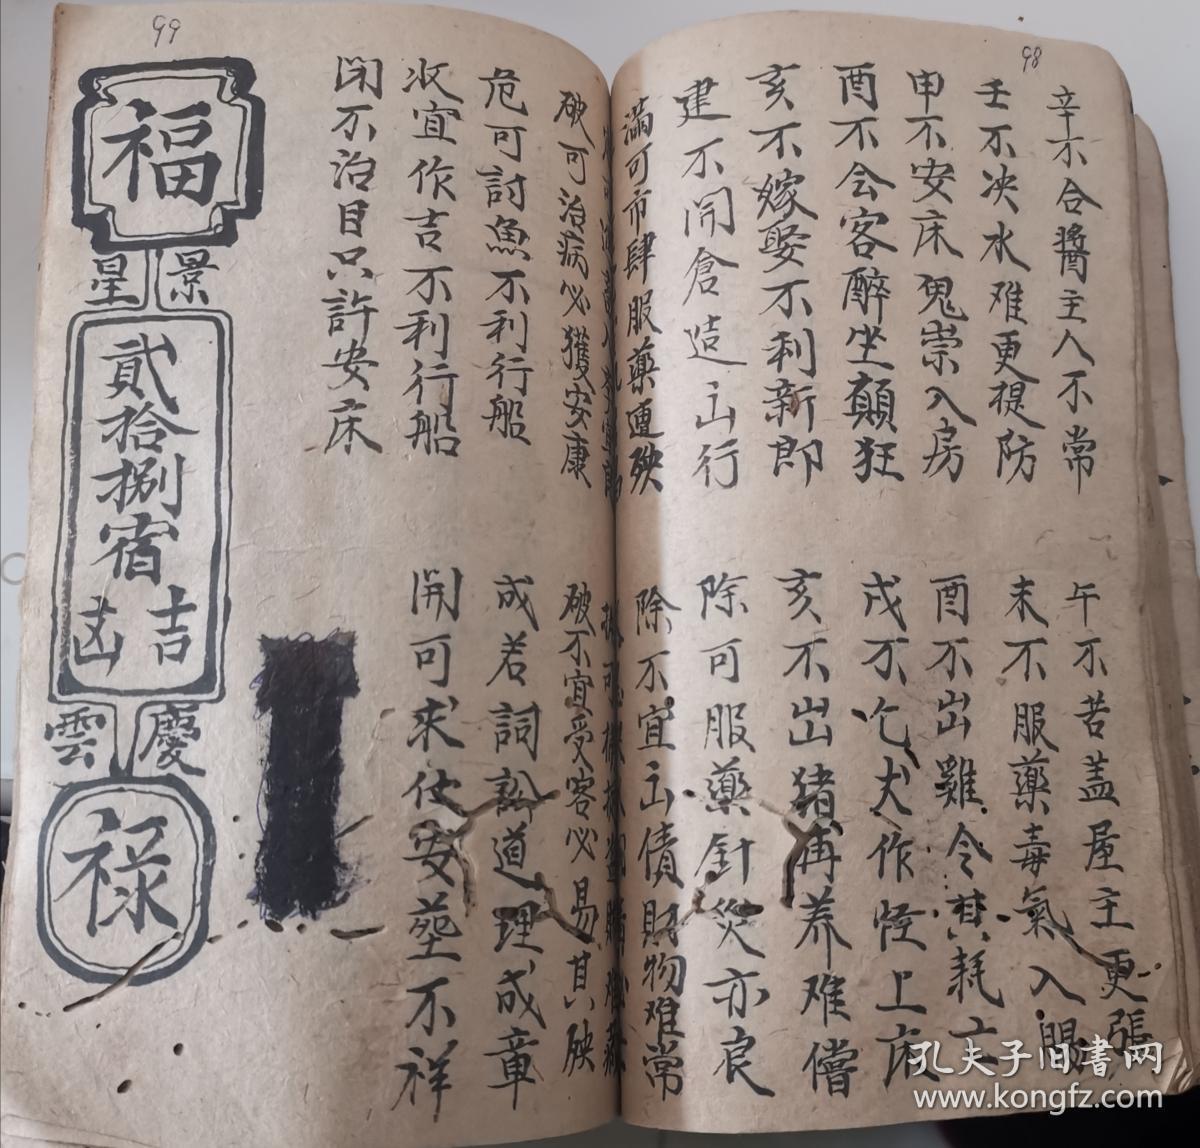 98
辛不合醬主人不常
午不苫盖屋主更張
壬不决水难更提防
未不服藥毒氣入腸
申不安床鬼祟入房
酉不出雞令其耗亡
酉不会客醉坐顛狂
戌不乞犬作怪上床
亥不嫁娶不利新郎
亥不出猪再养难償
建不開倉造出行
除可服藥針灸亦良
滿可市肆服藥連殃
除不宜出債財物难常
破可治病必獲安康
破不宜受客必易其殃
危可討魚不利行船
成若詞訟道理成章
收宜作吉不利行船
開可求仕安塟不祥
閉不治目只許安床
99
福
景星
貳拾捌宿
吉凶
慶雲
禄
孔夫子旧書网
www.kongfz.com